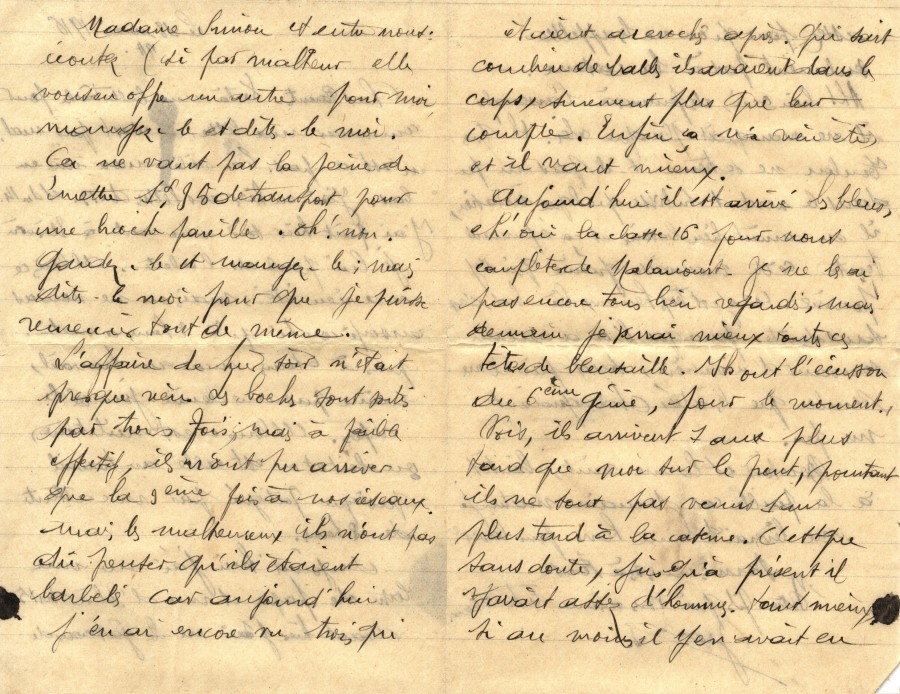 Madame Simon et entre nous:
écoutez (si par malheur elle
vous en offre un autre pour moi
mangez-le et dites-le moi.
Ca ne vaut pas la peine de
mettre 1f 35 de transport pour
une brioche pareille. Oh! non.
Gardez-le et mangez-le; mais
dites-le moi pour que je puisse
remercier tout de même.
L'affaire de hier soir n'était
presque rien les boches sont sortis
par trois fois; mais à faible
effectif, ils n'ont pu arriver
que la 3ème fois à nos réseaux.
Mais les malheureux ils n'ont pas
dû penser qu'ils étaient
barbelés car aujourd'hui
j'en ai encore vu trois qui
étaient accrochés après. Qui sait
combien de balles ils avaient dans le
corps, surement plus que leur
compte. Enfin ça n'a rien été
et il vaut mieux.
Aujourd'hui il est arrivé les bleus,
eh! oui la classe 16 pour nous
compléter de Malancourt. Je ne les ai
pas encore tous bien regardés, mais
demain je verrai mieux toutes ces
têtes de bleusaille. Ils ont l'écusson
du 6ème Génie, pour le moment.
Vois, ils arrivent 1 ans plus
tard que moi sur le front, pourtant
ils ne sont pas venus 1 ans
plus tard à la caserne. C'est que
sans doute, jusqu'à présent il
y avait assez d'hommes. Tant mieux
si au moins il y en avait eu